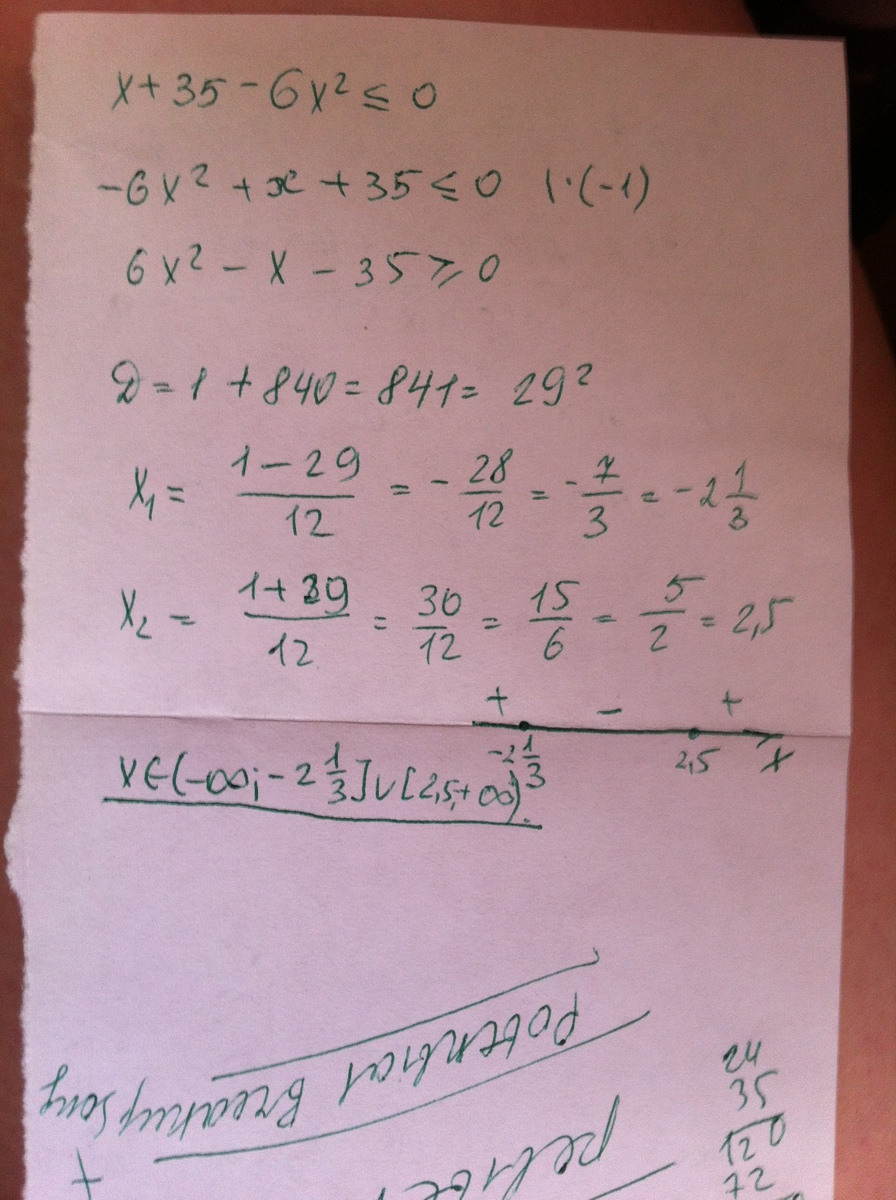 x + 35 - 6x² ≤ 0
-6x² + x + 35 ≤ 0 |·(-1)
6x² - x - 35 ⩾ 0
D = 1 + 840 = 841 = 29²
x₁ = (1 - 29)/12 = - 28/12 = - 7/3 = - 2 1/3
x₂ = (1 + 29)/12 = 30/12 = 15/6 = 5/2 = 2,5
+ - +
-2 1/3 2,5 x
x ∈ (-∞; -2 1/3] ∪ [2,5; +∞).
Potential Breakup song
24
35
120
72